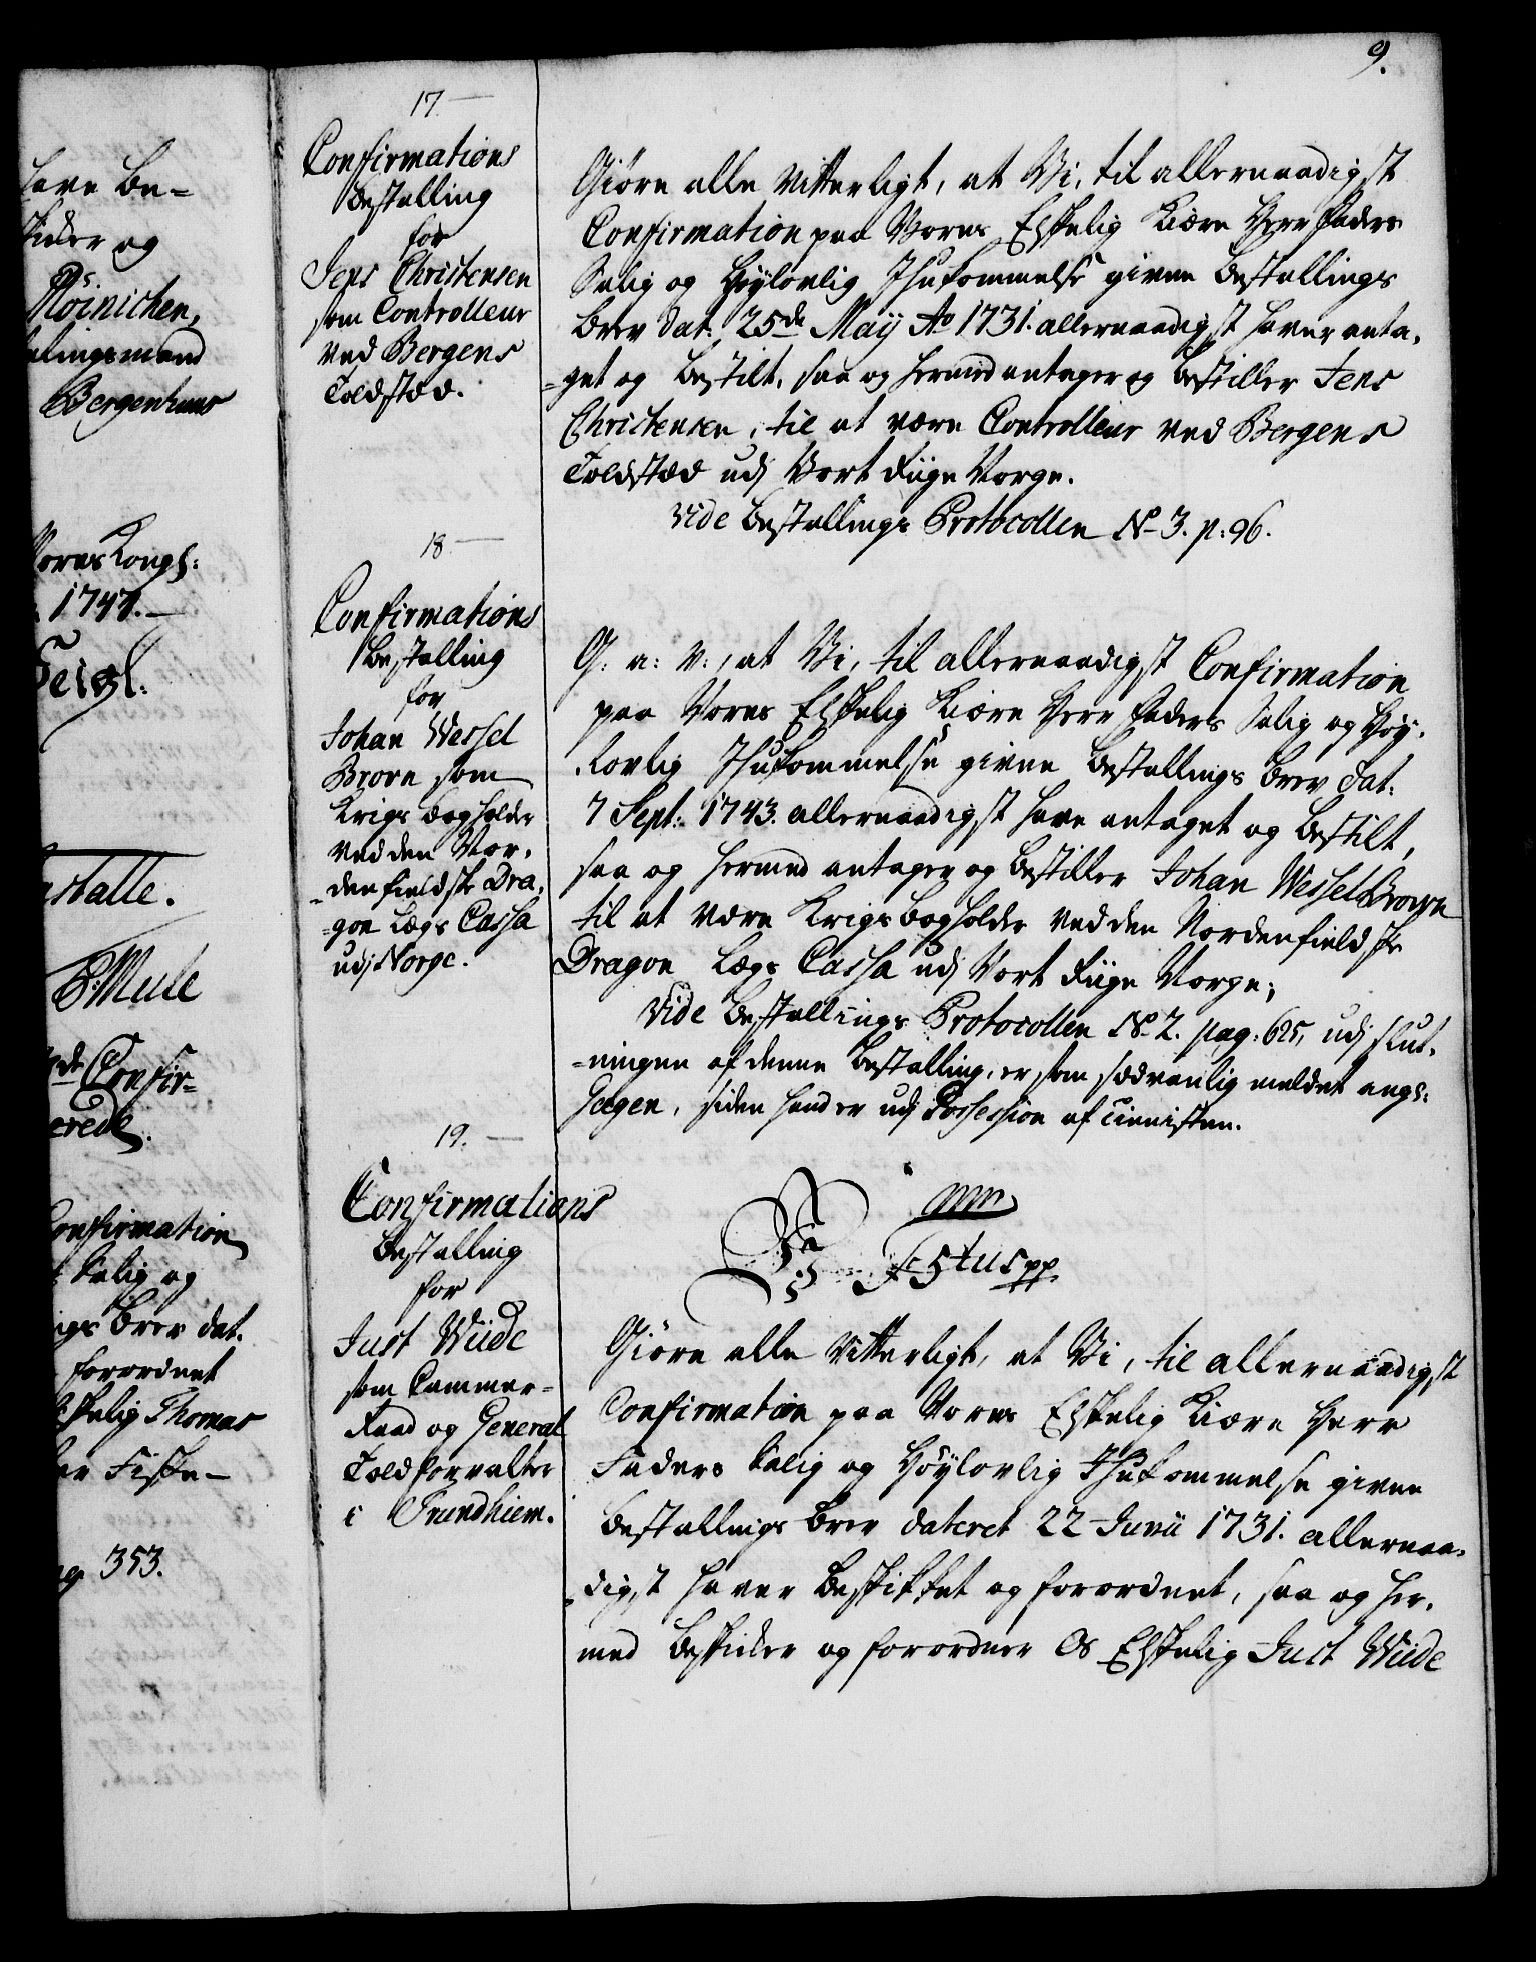 9.
have Be-
skicker og
Möinichen,
alingsmand
Bergenhuus
Vores Kongl:
1747.
Seigl:
stalle.
E: Mule
Confir-
erede.
Confirmation
Salig og
ngs Brev dat.
forordnet
Elskelig Thomas
er Fiske-
ag 353.
17.
Confirmations
Bestalling
for
Jens Christensen
som Controlleur
ved Bergens
Toldstæd.
Giöre alle Vitterligt, at Vi, til allernaadigst
Confirmation paa Vores Elskelig Kiære Herr Faders
Salig og Höylovlig Ihukommelse givne Bestallings
Brev dat: 25de Maij Ao 1731. allernaadigst haver anta-
-get og Bestilt, saa og hermed antager og Bestiller Jens
Christensen, til at være Controlleur ved Bergens
Toldstæd udj Vort Riige Norge.
Vide Bestallings Protocollen No 3. p: 96.
18.
Confirmations
Bestalling
for
Johan Wessel
Brown som
Krigs Bogholder
ved den Nor-
-denfieldske Dra-
-gon Lægs Cassa
udj Norge.
G: a: V:, at Vi, til allernaadigst Confirmation
paa Vores Elskelig Kiære Herr Faders Salig og Höy-
-lovlig Ihukommelse givne Bestallings Brev dat:
7 Sept: 1743. allernaadigst have antaget og Bestilt,
saa og hermed antager og Bestiller Johan Wessel Brown
til at være Krigs Bogholder ved den Nordenfieldske
Dragon Lægs Cassa udj Vort Riige Norge;
Vide Bestallings Protocollen No 2. pag: 625, udj slut-
-ningen af denne Bestalling, er som sædvanlig meldet
siden hand er udj Possession af Tienisten.
19.
Confirmations
Bestalling
for
Just Wiide
som Cammer-
Raad og General
Toldforvalter
i Trundhiem.
Giöre alle Vitterligt, at Vi, til allernaadigst
Confirmation paa Vores Elskelig Kiære Herr
Faders Salig og Höylovlig Ihukommelse givne
Bestallings Brev dateret 22 Junii 1731. allernaa-
-digst haver Beskikket og forordnet, saa og her-
med Beskicker og forordner Os Elskelig Just Wiide